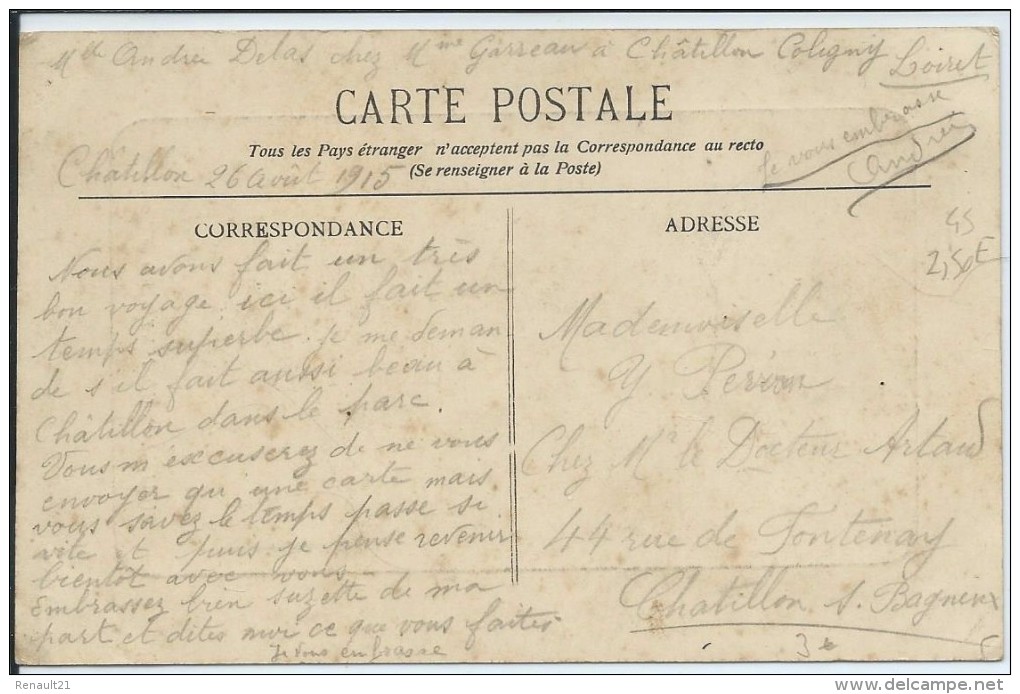 Mlle Andrée Delas chez Mme Garreau à Châtillon Coligny
Loiret
CARTE POSTALE
Tous les Pays étranger n'acceptent pas la Correspondance au recto
(Se renseigner à la Poste)
Je vous embrasse
Andrée
Châtillon 26 Août 1915
CORRESPONDANCE
Nous avons fait un très
bon voyage, ici il fait un
temps superbe. Je me deman
de s'il fait aussi beau à
Châtillon dans le parc.
Vous m'excuserez de ne vous
envoyer qu'une carte mais
vous savez le temps passe si
vite et puis je pense revenir
bientôt avec vous
Embrassez bien Suzette de ma
part et dites moi ce que vous faites
Je vous embrasse
ADRESSE
45
2,50E
Mademoiselle
Y
Chez Mr le Docteur Artaud
44 rue de Fontenay
Chatillon s. Bagneux
3e
Renault21
www.delcampe.net